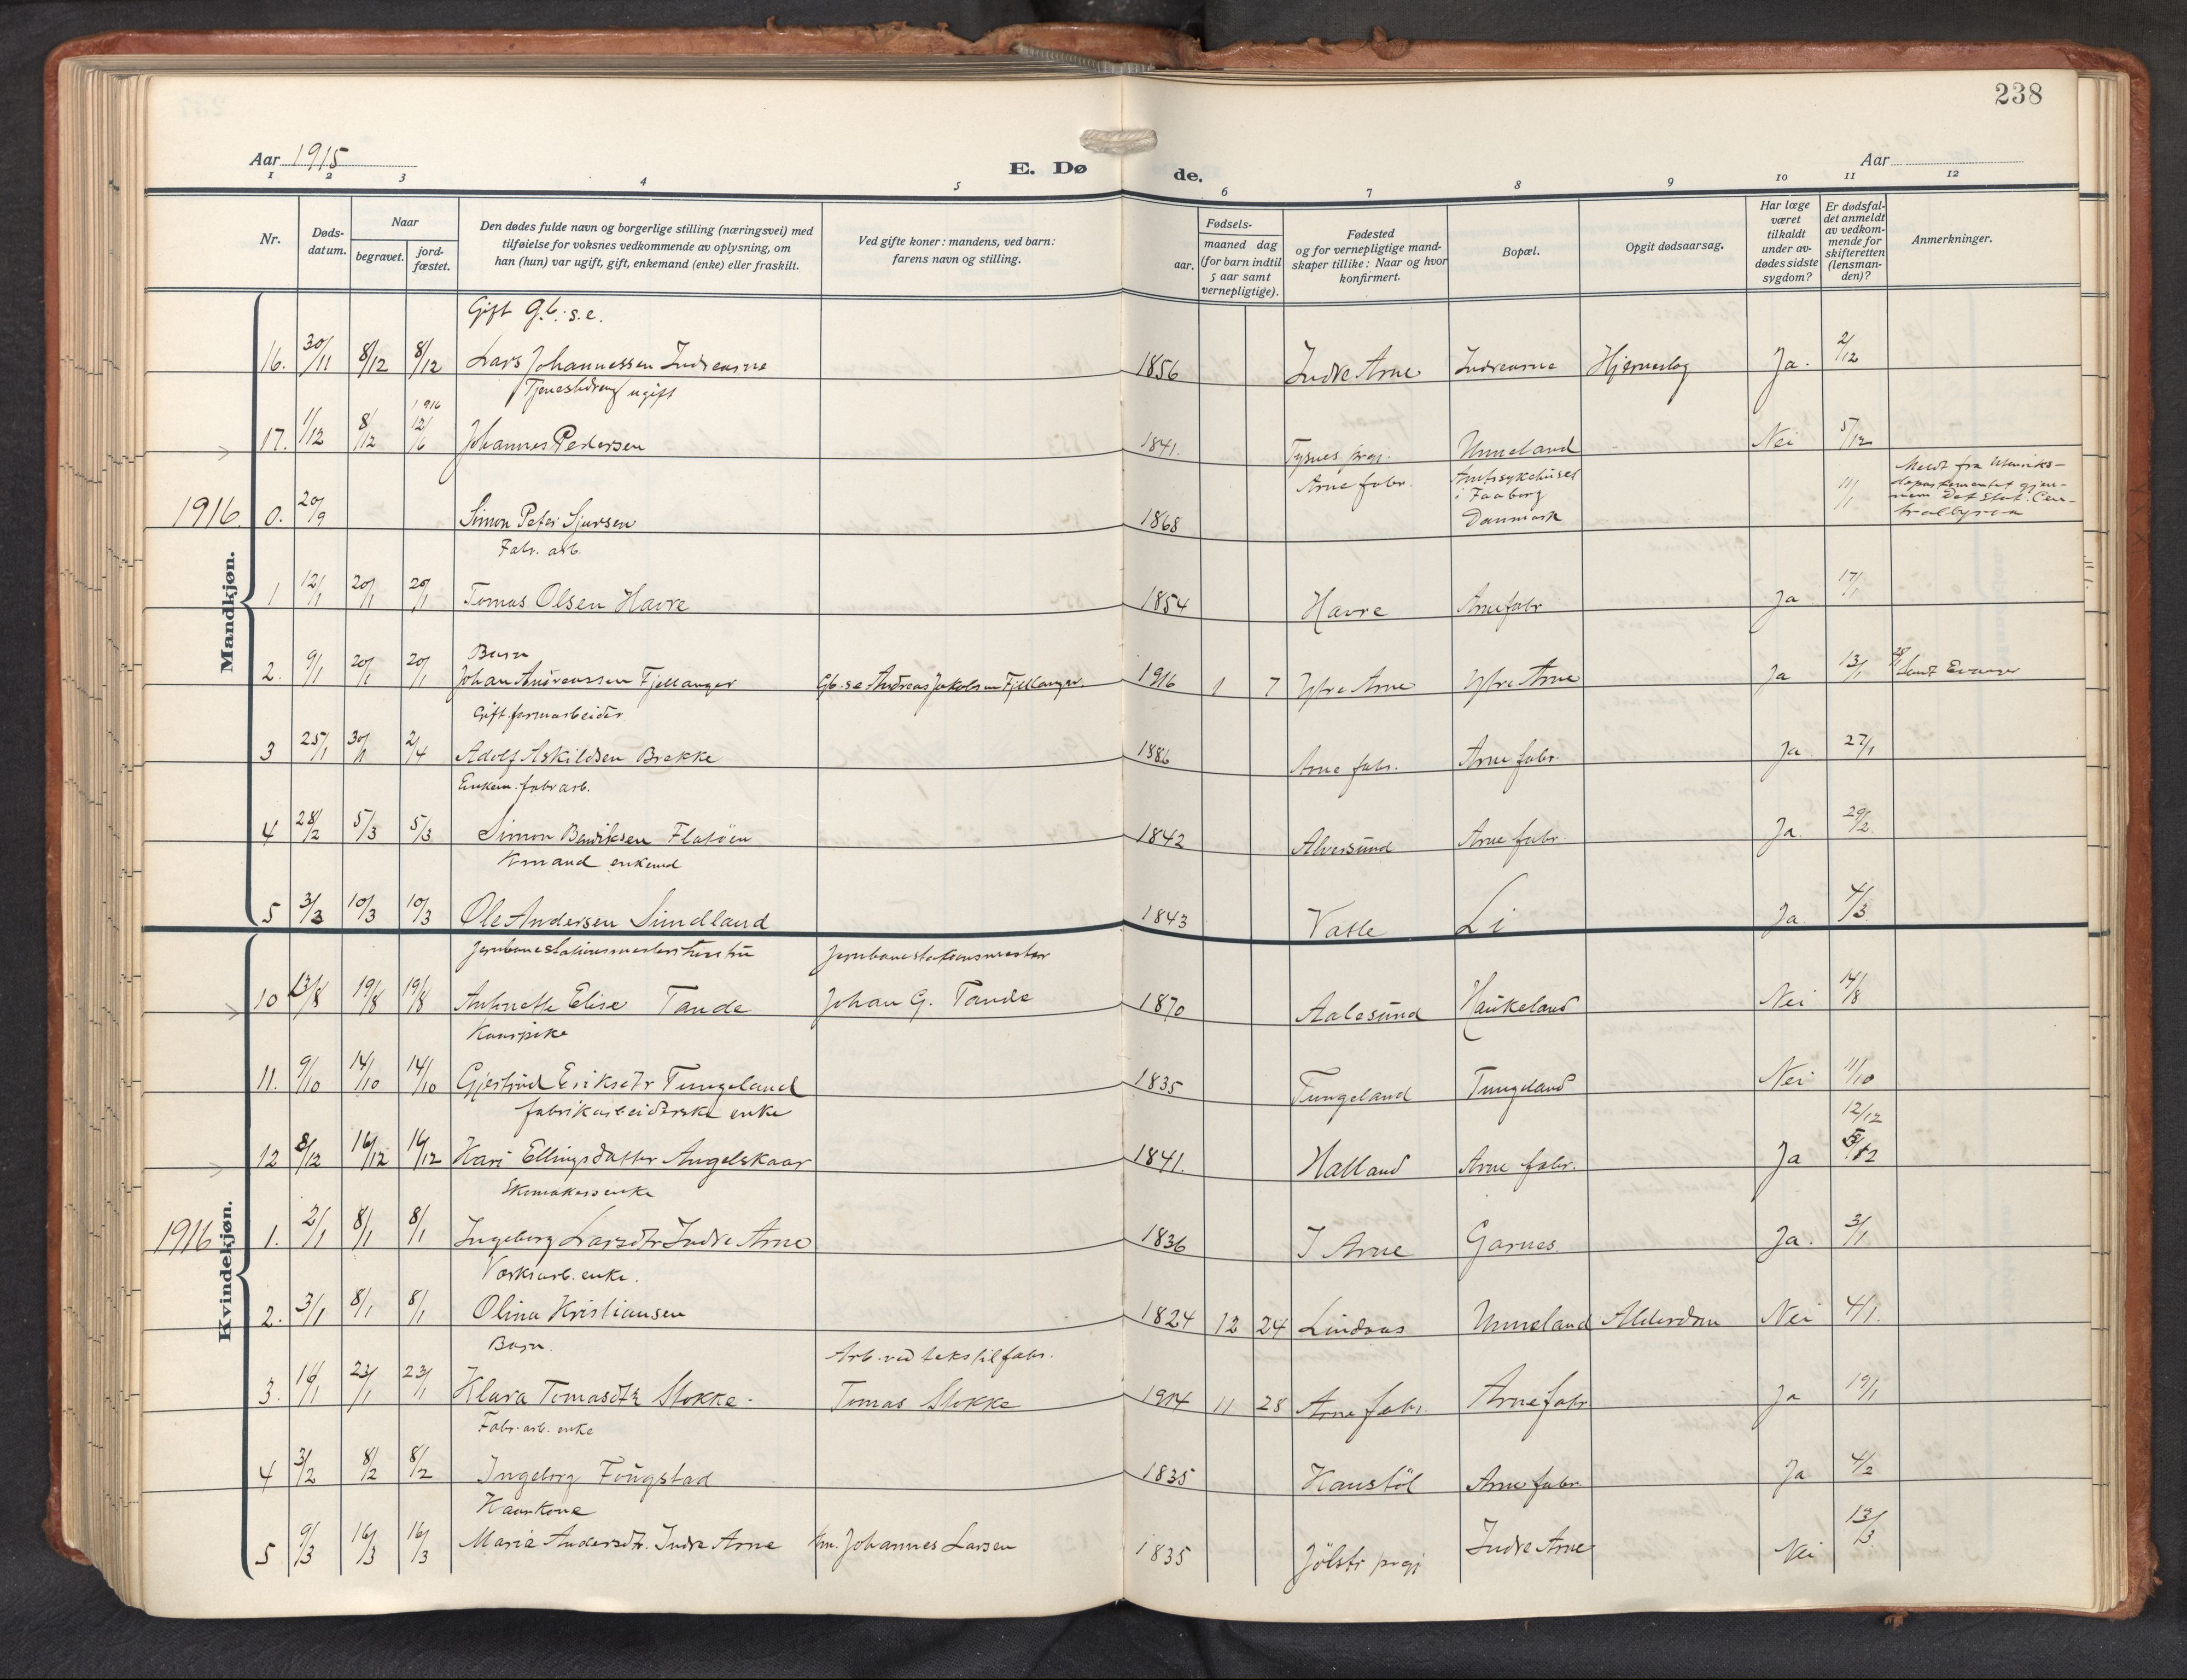 238
Aar 1915
E. Dø de.
Aar
1 2 3 4 5 6 7 8 9 10 11 12
Nr.
Døds-datum.
Naar
begravet.
jord-fæstet.
Den dødes fulde navn og borgerlige stilling (næringsvei) med
tilføielse for voksnes vedkommende av oplysning, om
han (hun) var ugift, gift, enkemand (enke) eller fraskilt.
Ved gifte koner: mandens, ved barn:
farens navn og stilling.
Fødsels-
aar.
maaned dag
(for barn indtil
5 aar samt
vernepligtige).
Fødested
og for vernepligtige mand-
skaper tillike: Naar og hvor
konfirmert.
Bopæl.
Opgit dødsaarsag.
Har læge
været
tilkaldt
under av-
dødes sidste
sygdom?
Er dødsfal-
det anmeldt
av vedkom-
mende for
skifteretten
(lensman-
den)?
Anmerkninger.
Mandkjøn.
Gift gb.s.e.
16. 30/11 8/12 8/12 Lars Johannessen Indrearne 1856 Indre Arne Indrearne Hjerneslag Ja. 2/12
Tjenestedreng ugift
17. 1/12 8/12 1916 12/6 Johannes Pedersen 1841. Tysnes prgj. Unneland - Nei 5/12
1916. 0. 20/9 Simon Peter Sjursen 1868 Arne fabr. Amtssykehuset i Faaborg Danmark 11/1 Meldt fra Utenriks-
departementet gjen-
nem Det Stat. Cen-
tralbyraa
Fabr. arb.
1 12/1 20/1 20/1 Tomas Olsen Havre 1854 Havre Arne fabr Ja 17/1
Barn
2. 9/1 20/1 20/1 Johan Andreassen Fjellanger Gb.s.e Andreas Jakobsen Fjellanger. 1916 1 7 Ytre Arne Ytre Arne Ja 13/1 Sendt Evanger
Gift formarbeider
3 25/1 30/1 2/4 Adolf Askildsen Brekke 1886 Arne fabr. Arne fabr. Ja 27/1
Enkem. fabr arb.
4 28/2 5/3 5/3 Simon Bendiksen Flatöen 1842 Alversund Arne fabr Ja. 29/2
Kmand enkemd
5 3/3 10/3 10/3 Ole Andersen Sundland 1843 Vatle Li Ja 4/3
Kvindekjøn.
Jernbanestationsmesters hustru Jernbanestationsmester
10 13/8 19/8 19/8 Antonette Elise Tande Johan G. Tande 1870 Aalesund Haukeland Nei 14/8
Kaarpike
11. 9/10 14/10 14/10 Gjertrud Eriksdtr Tungeland 1835 Tungeland Tungeland Nei 11/10
fabrikarbeiderske enke
12 8/12 16/12 16/12 Kari Ellingsdatter Angelskaar 1841. Hatland Arne fabr. Ja 12/12
Skomakersenke
1916 1. 2/1 8/1 8/1 Ingeborg Larsdtr Indre Arne 1836 I Arne Garnes Ja. 3/1
Verksarb. enke.
2. 3/1 8/1 8/1 Olina Kristiansen 1824 12 24 Lindaas Unneland Alderdom Nei 4/1.
Barn. Arb. ved tekstilfabr.
3. 16/1 23/1 23/1 Klara Tomasdtr Stokke. Tomas Stokke 1914 11 28 Arne fabr. Arne fabr Ja 19/1
Fabr. arb. enke
4 3/2 8/2 8/2 Ingeborg Fougstad 1835 Kaustöl Arne fabr. Ja 4/2
Kaarkone
5 9/3 16/3 16/3 Maria Andersdtr. Indre Arne Km. Johannes Larsen 1835 Jölstr prgj Indre Arne Nei 13/3